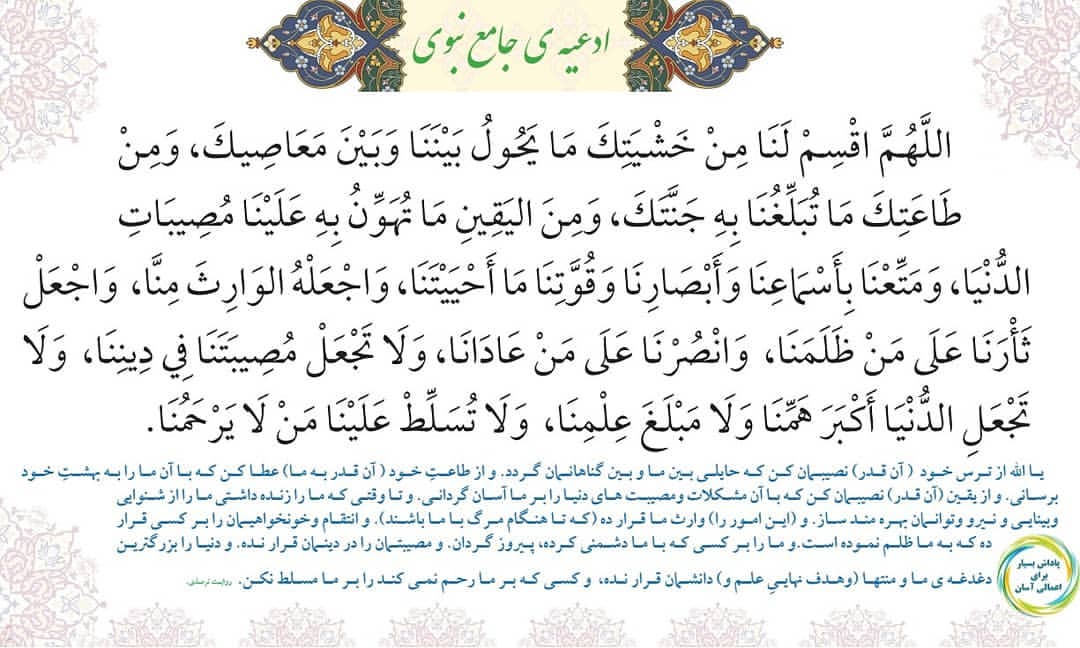 ادعیه ی جامع نبوی
اللَّهُمَّ اقْسِمْ لَنَا مِنْ خَشْيَتِكَ مَا يَحُولُ بَيْنَنَا وَبَيْنَ مَعَاصِيكَ، وَمِنْ
طَاعَتِكَ مَا تُبَلِّغُنَا بِهِ جَنَّتَكَ، وَمِنَ اليَقِينِ مَا تُهَوِّنُ بِهِ عَلَيْنَا مُصِيبَاتِ
الدُّنْيَا، وَمَتِّعْنَا بِأَسْمَاعِنَا وَأَبْصَارِنَا وَقُوَّتِنَا مَا أَحْيَيْتَنَا، وَاجْعَلْهُ الوَارِثَ مِنَّا، وَاجْعَلْ
ثَأْرَنَا عَلَى مَنْ ظَلَمَنَا، وَانْصُرْنَا عَلَى مَنْ عَادَانَا، وَلَا تَجْعَلْ مُصِيبَتَنَا فِي دِينِنَا، وَلَا
تَجْعَلِ الدُّنْيَا أَكْبَرَ هَمِّنَا وَلَا مَبْلَغَ عِلْمِنَا، وَلَا تُسَلِّطْ عَلَيْنَا مَنْ لَا يَرْحَمُنَا.
یا الله از ترس خود ( آن قدر) نصیبمان کن که حایلی بین ما و بین گناهانمان گردد. و از طاعتِ خود ( آن قدر به ما) عطا کن که با آن ما را به بهشتِ خود
برسانی. و از یقین (آن قدر) نصیبمان کن که با آن مشکلات ومصیبت های دنیا را بر ما آسان گردانی. و تا وقتی که ما را زنده داشتی ما را از شنوایی
وبینایی و نیرو وتوانمان بهره مند ساز. و (این امور را) وارث ما قرار ده (که تا هنگام مرگ با ما باشند). و انتقام وخونخواهیمان را بر کسی قرار
ده که به ما ظلم نموده است.و ما را بر کسی که با ما دشمنی کرده، پیروز گردان. و مصیبتمان را در دینمان قرار نده. و دنیا را بزرگترین
دغدغه ی ما و منتها (وهدف نهاییِ علم و) دانشمان قرار نده، و کسی که بر ما رحم نمی کند را بر ما مسلط نکن. روایت ترمذی.
پاداش بسیار
برای
اعمالی آسان